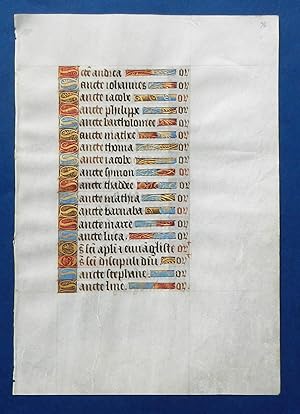 Scē andrea or
Sancte iohannes or
Sancte iacobe or
Sancte philippe or
Sancte bartholomee or
Sancte mathee or
Sancte thoma or
Sancte iacobe or
Sancte symon or
Sancte thaddee or
Sancte mathia or
Sancte barnaba or
Sancte marce or
Sancte luca or
Oēs sci apli et euuāgliste or
Oēs sci discipuli dn̄i or
Sancte stephane or
Sancte line or